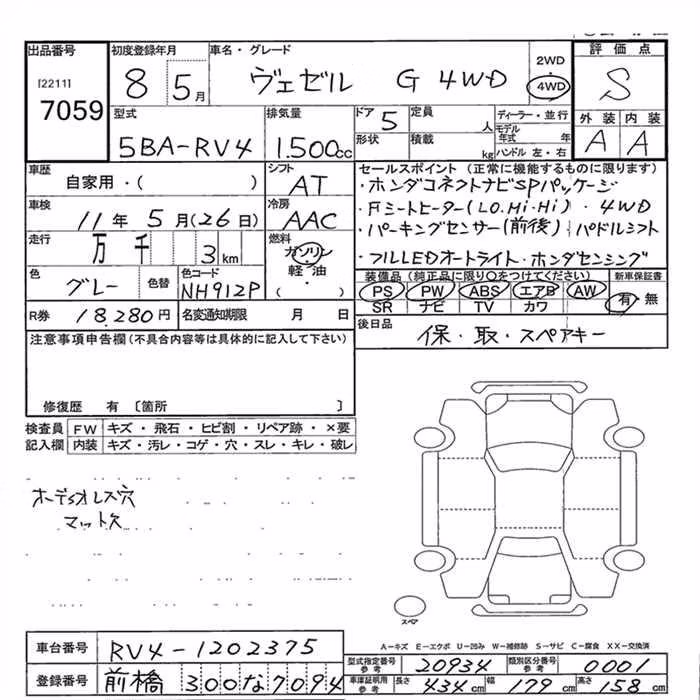 出品番号
[2211]
7059
初度登録年月
8 5月
車名・グレード
ヴェゼル G 4WD
2WD
4WD
評価点
S
外装 内装
A A
型式
5BA-RV4
排気量
1.500cc
ドア 5
形状
定員 人
積載 kg
ディーラー・並行
モデル年式 年
ハンドル 左・右
車歴
自家用・( )
シフト
AT
車検
11年5月(26日)
冷房
AAC
走行
万 千 3km
燃料
ガソリン
軽油・
( )
色
グレー
色替
色コード
NH912P
R券 18,280円
名変通知期限 月 日
セールスポイント (正常に機能するものに限ります)
・ホンダコネクトナビSPパッケージ
・Fシートヒーター(LO.Mi.Hi) ・4WD
・パーキングセンサー(前後) ・パドルシフト
・フルLEDオートライト・ホンダセンシング
装備品(純正品に限り○をつけてください)
PS PW ABS エアB AW
SR ナビ TV カワ
新車保証書
有・無
後日品
保・取・スペアキー
注意事項申告欄(不具合内容等は具体的に記入して下さい)
修復歴 有 〔箇所 〕
検査員記入欄
FW キズ・飛石・ヒビ割・リペア跡・×要
内装 キズ・汚レ・コゲ・穴・スレ・キレ・破レ
マット欠
スペア
A−キズ E−エクボ U−凹み W−補修跡 S−サビ C−腐食 XX−交換済
車台番号 RV4-1202375
登録番号 前橋 300な7094
型式指定番号 参考 20934
類別区分番号 参考 0001
車庫証明用 参考 長さ 434cm 幅 179cm 高さ 158cm